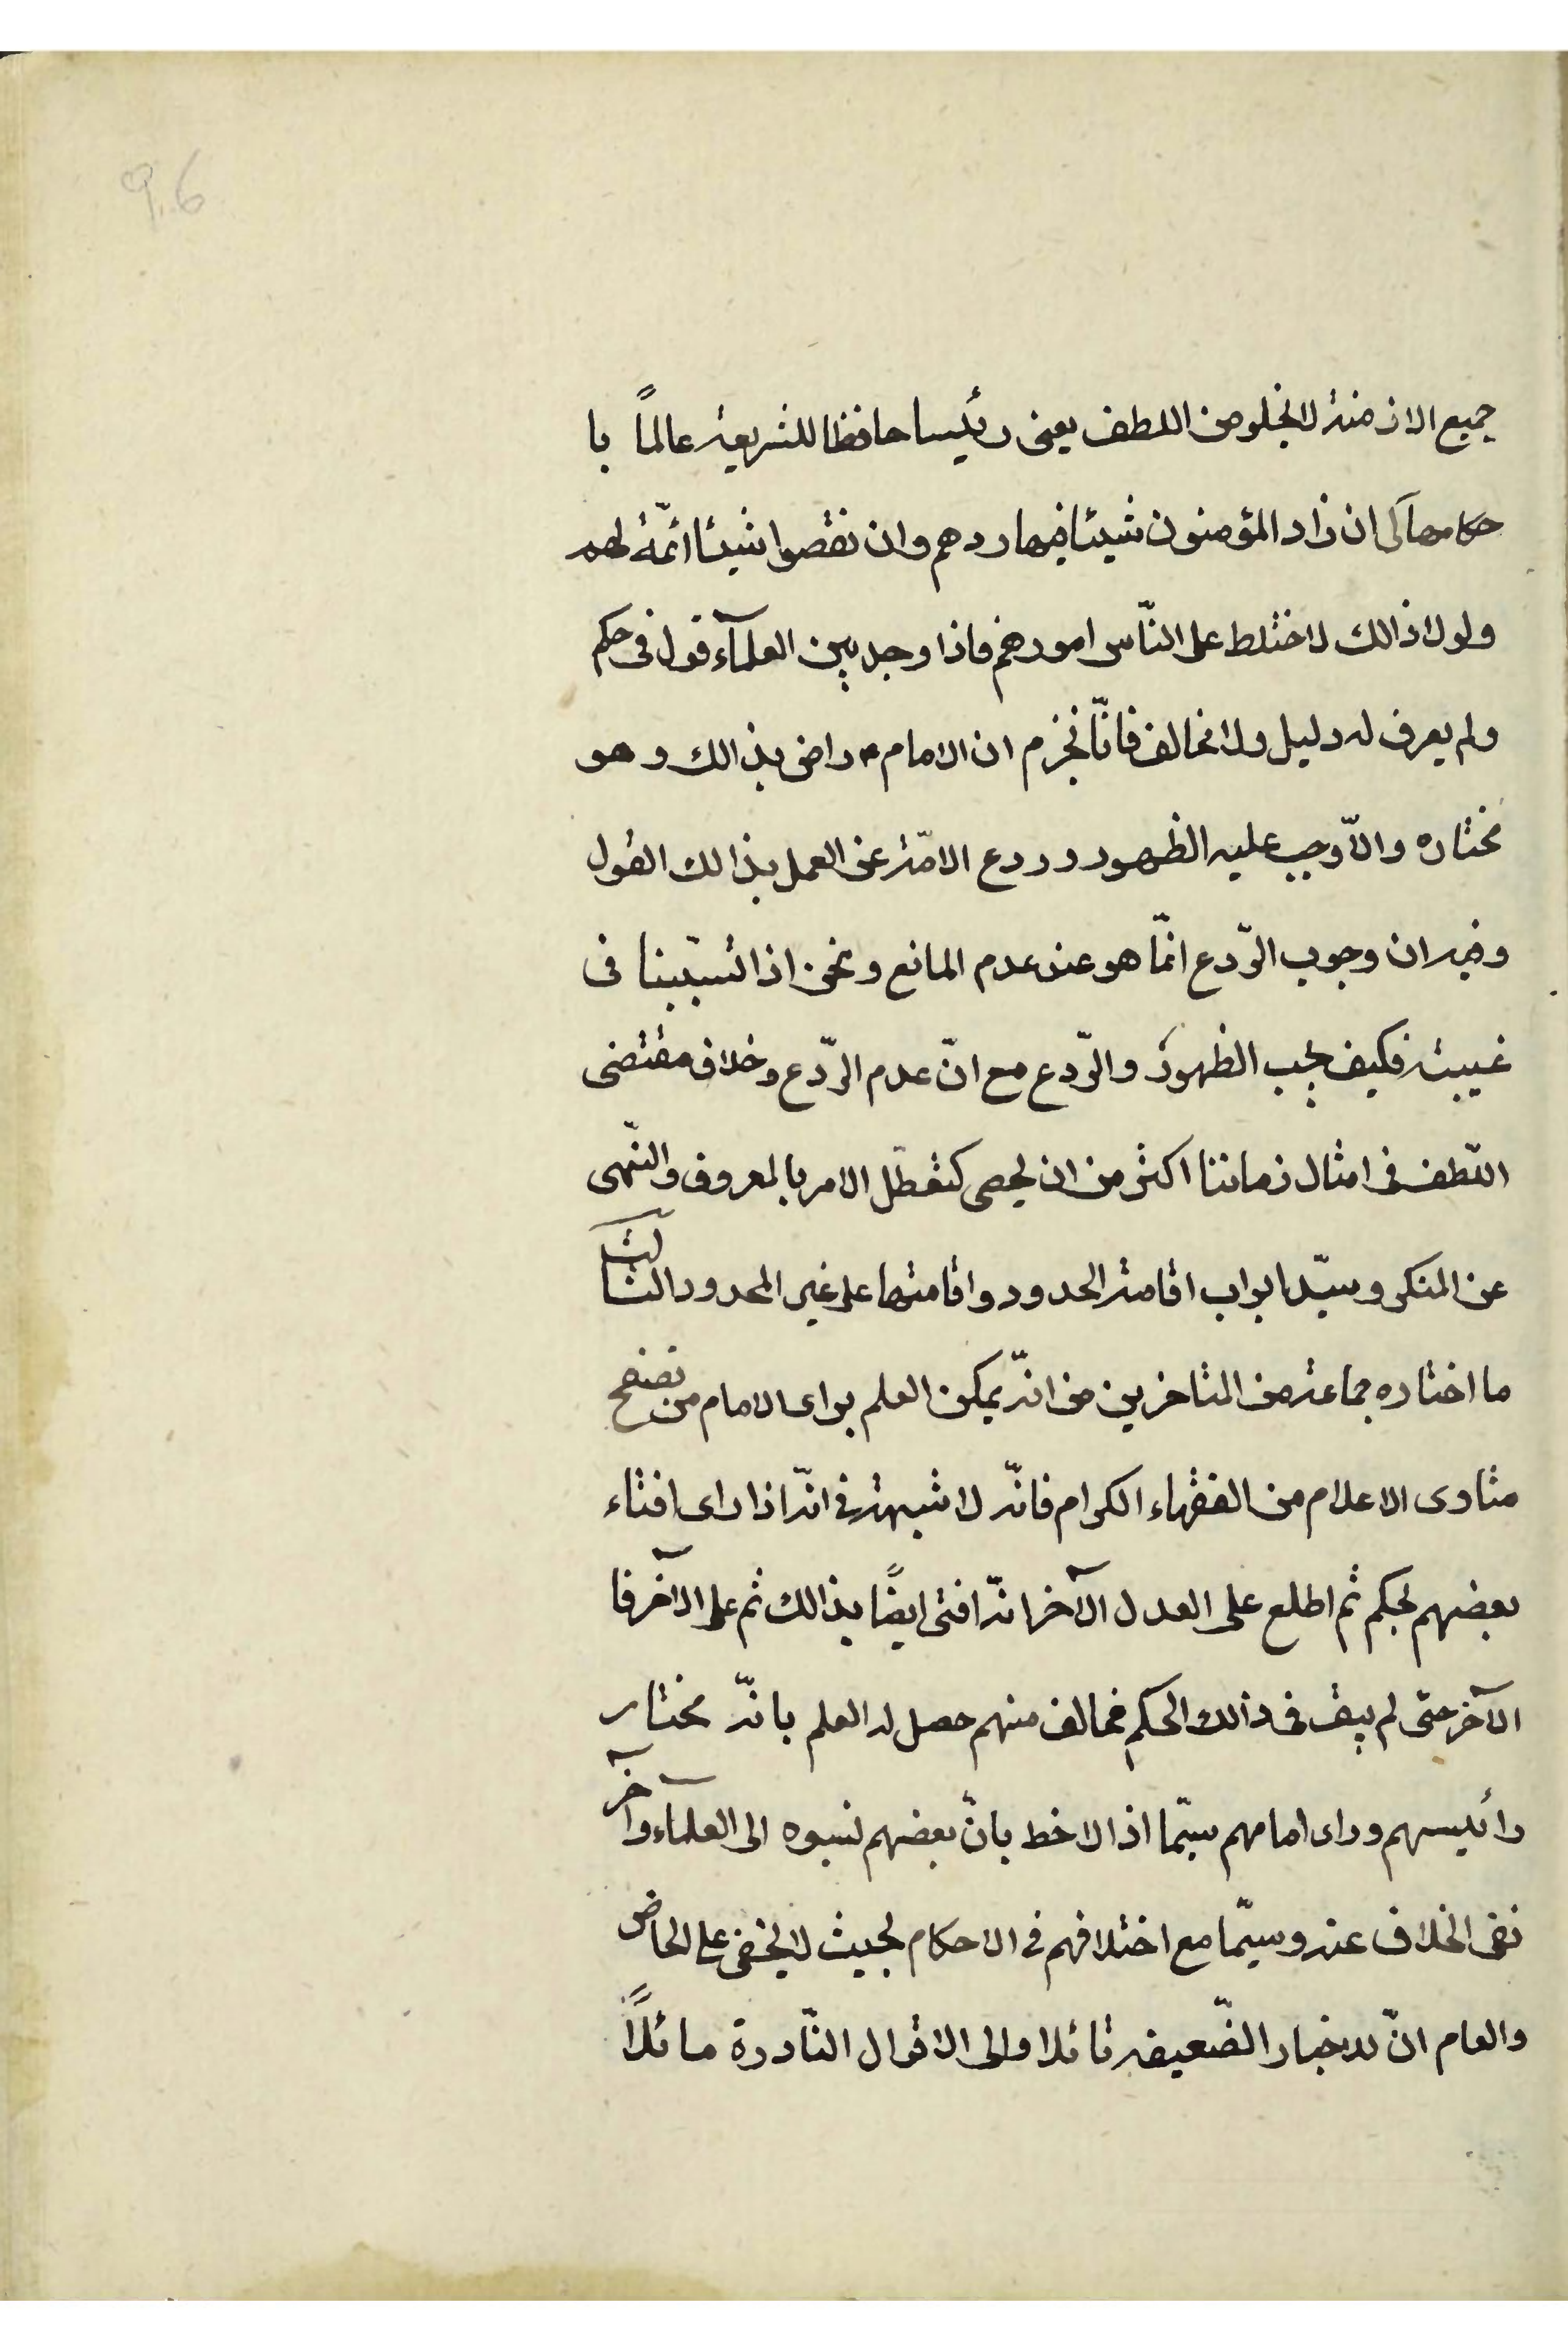 9.6
جميع الازمنة لا يخلو من اللطف يعنى رئيسا حافظا للشريعة عالماً با
حكامها كى ان زاد المؤمنون شيئا فيها ردهم وان نقصوا شيئا اتمّه لهم
ولولا ذالك لاختلط على النّاس امورهم فاذا وجد بين العلمآء قول فى حكم
ولم يعرف له دليل ولا مخالف فانّا نجزم ان الامام ع راض بذالك وهو
مختاره والاّ وجب عليه الظهور وردع الامّة عن العمل بذالك القول
وفيه ان وجوب الرّدع انمّا هو عند عدم المانع ونحن اذا تسبّبنا فى
غيبته فكيف يجب الظهور والرّدع مع انّ عدم الرّدع وخلاف مقتضى
اللّطف فى امثال زماننا اكثر من ان يحصى كتعطّل الامر بالمعروف والنّهى
عن المنكر وسدّ ابواب اقامة الحدود واقامتها على غير المحدود الثالث
ما اختاره جماعة من المتاخرين من انّه يمكن العلم براى الامام من تصفح
فتاوى الاعلام من الفقهاء الكرام فانّه لا شبهة فى انّه اذا راى افتاء
بعضهم بحكم ثم اطلع على العدل الآخر انّه افتى ايضًا بذالك ثم على الآخر فا
الآخر حتى لم يبق فى ذالك الحكم مخالف منهم حصل له العلم بانّه مختار
رائيسهم وراى امامهم سيّما اذا لاخط بانّ بعضهم نسبوه الى العلمآء وآخر
نفى الخلاف عنه وسيّما مع اختلافهم فى الاحكام بحيث لا يخفى على الخاص
والعام انّ للاخبار الضّعيفة قائلا والى الاقوال النّادرة مائلاً